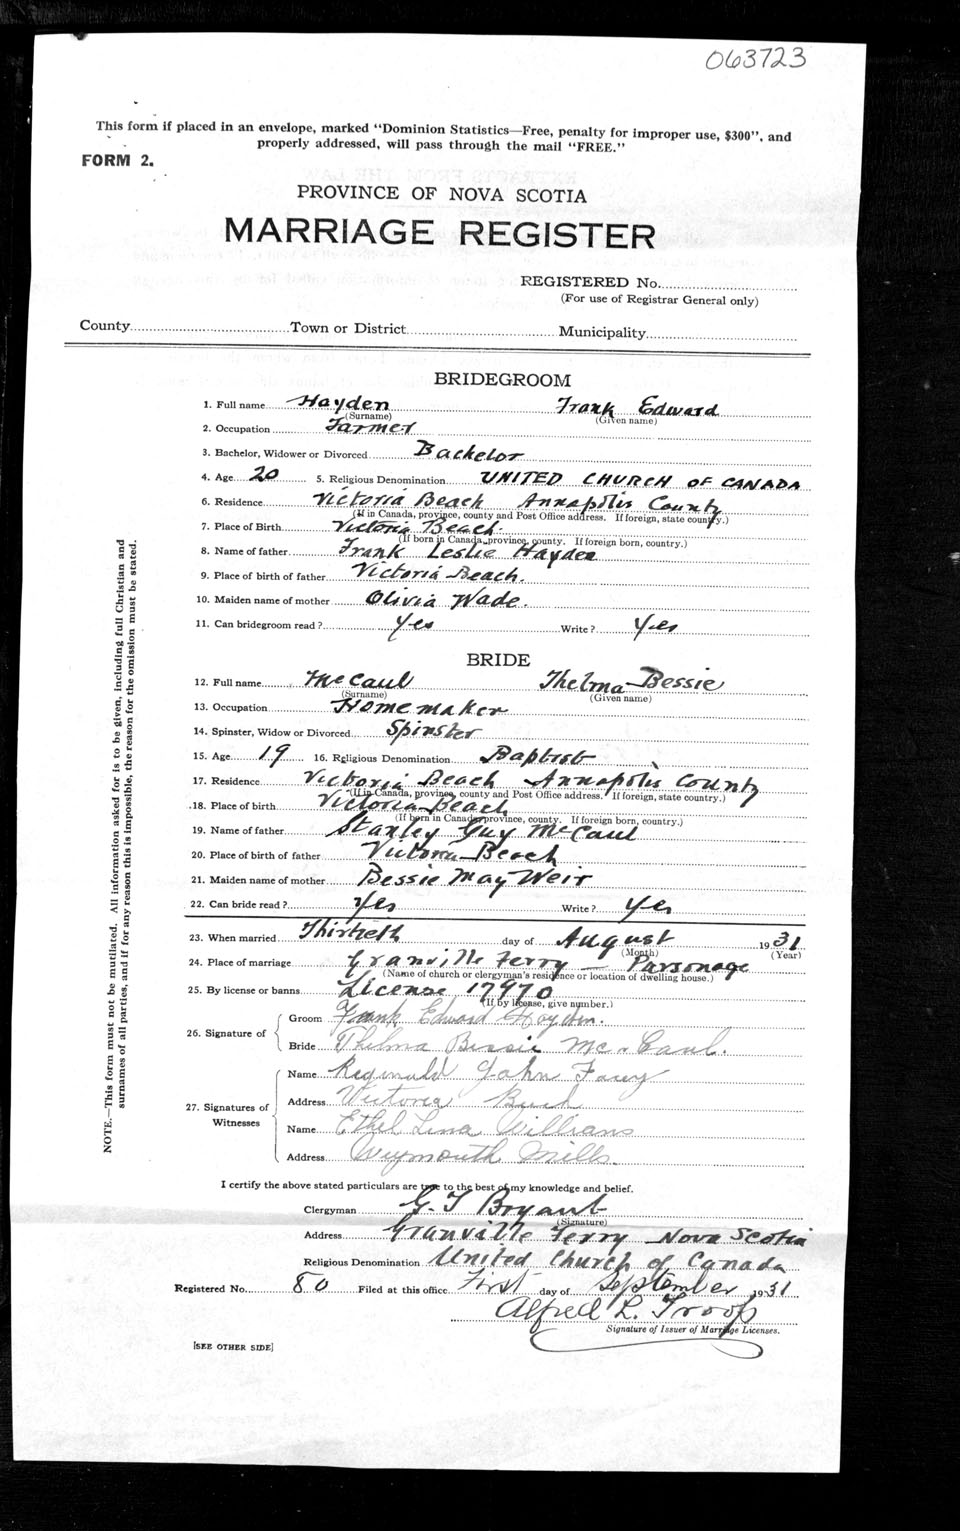 063723
This form if placed in an envelope, marked "Dominion Statistics—Free, penalty for improper use, $300", and
properly addressed, will pass through the mail "FREE."
FORM 2.
PROVINCE OF NOVA SCOTIA
MARRIAGE REGISTER
REGISTERED No.
(For use of Registrar General only)
County Town or District Municipality
BRIDEGROOM
1. Full name Hayden Frank Edward
(Surname) (Given name)
2. Occupation Farmer
3. Bachelor, Widower or Divorced Bachelor
4. Age 20 5. Religious Denomination UNITED CHURCH OF CANADA
6. Residence Victoria Beach Annapolis County
(If in Canada, province, county and Post Office address. If foreign, state county.)
7. Place of Birth Victoria Beach.
(If born in Canada, province, county. If foreign born, country.)
8. Name of father Frank Leslie Hayden
9. Place of birth of father Victoria Beach.
10. Maiden name of mother Olivia Wade.
11. Can bridegroom read? Yes Write? Yes
BRIDE
12. Full name McCaul Thelma Bessie
(Surname) (Given name)
13. Occupation Homemaker
14. Spinster, Widow or Divorced Spinster
15. Age 19 16. Religious Denomination Baptist
17. Residence Victoria Beach Annapolis County
(If in Canada, province, county and Post Office address. If foreign, state country.)
18. Place of birth Victoria Beach
(If born in Canada, province, county. If foreign born, country.)
19. Name of father Stanley Guy McCaul
20. Place of birth of father Victoria Beach
21. Maiden name of mother Bessie May Weir
22. Can bride read? Yes Write? Yes
23. When married Thirtieth day of August 1931
(Month) (Year)
24. Place of marriage Granville Ferry — Parsonage
(Name of church or clergyman's residence or location of dwelling house.)
25. By license or banns License 17970
(If by license, give number.)
26. Signature of
Groom Frank Edward Hayden.
Bride Thelma Bessie McCaul.
27. Signatures of
Witnesses
Name Reginald John
Address Victoria Beach
Name Ethel Lena Williams
Address Weymouth Mills.
I certify the above stated particulars are true to the best of my knowledge and belief.
Clergyman G. T Bryant
(Signature)
Address Granville Ferry Nova Scotia
Religious Denomination United Church of Canada
Registered No. 80 Filed at this office First day of September 1931
Alfred L. Troop
Signature of Issuer of Marriage Licenses.
[SEE OTHER SIDE]
NOTE.—This form must not be mutilated. All information asked for is to be given, including full Christian and
surnames of all parties, and if for any reason this is impossible, the reason for the omission must be stated.